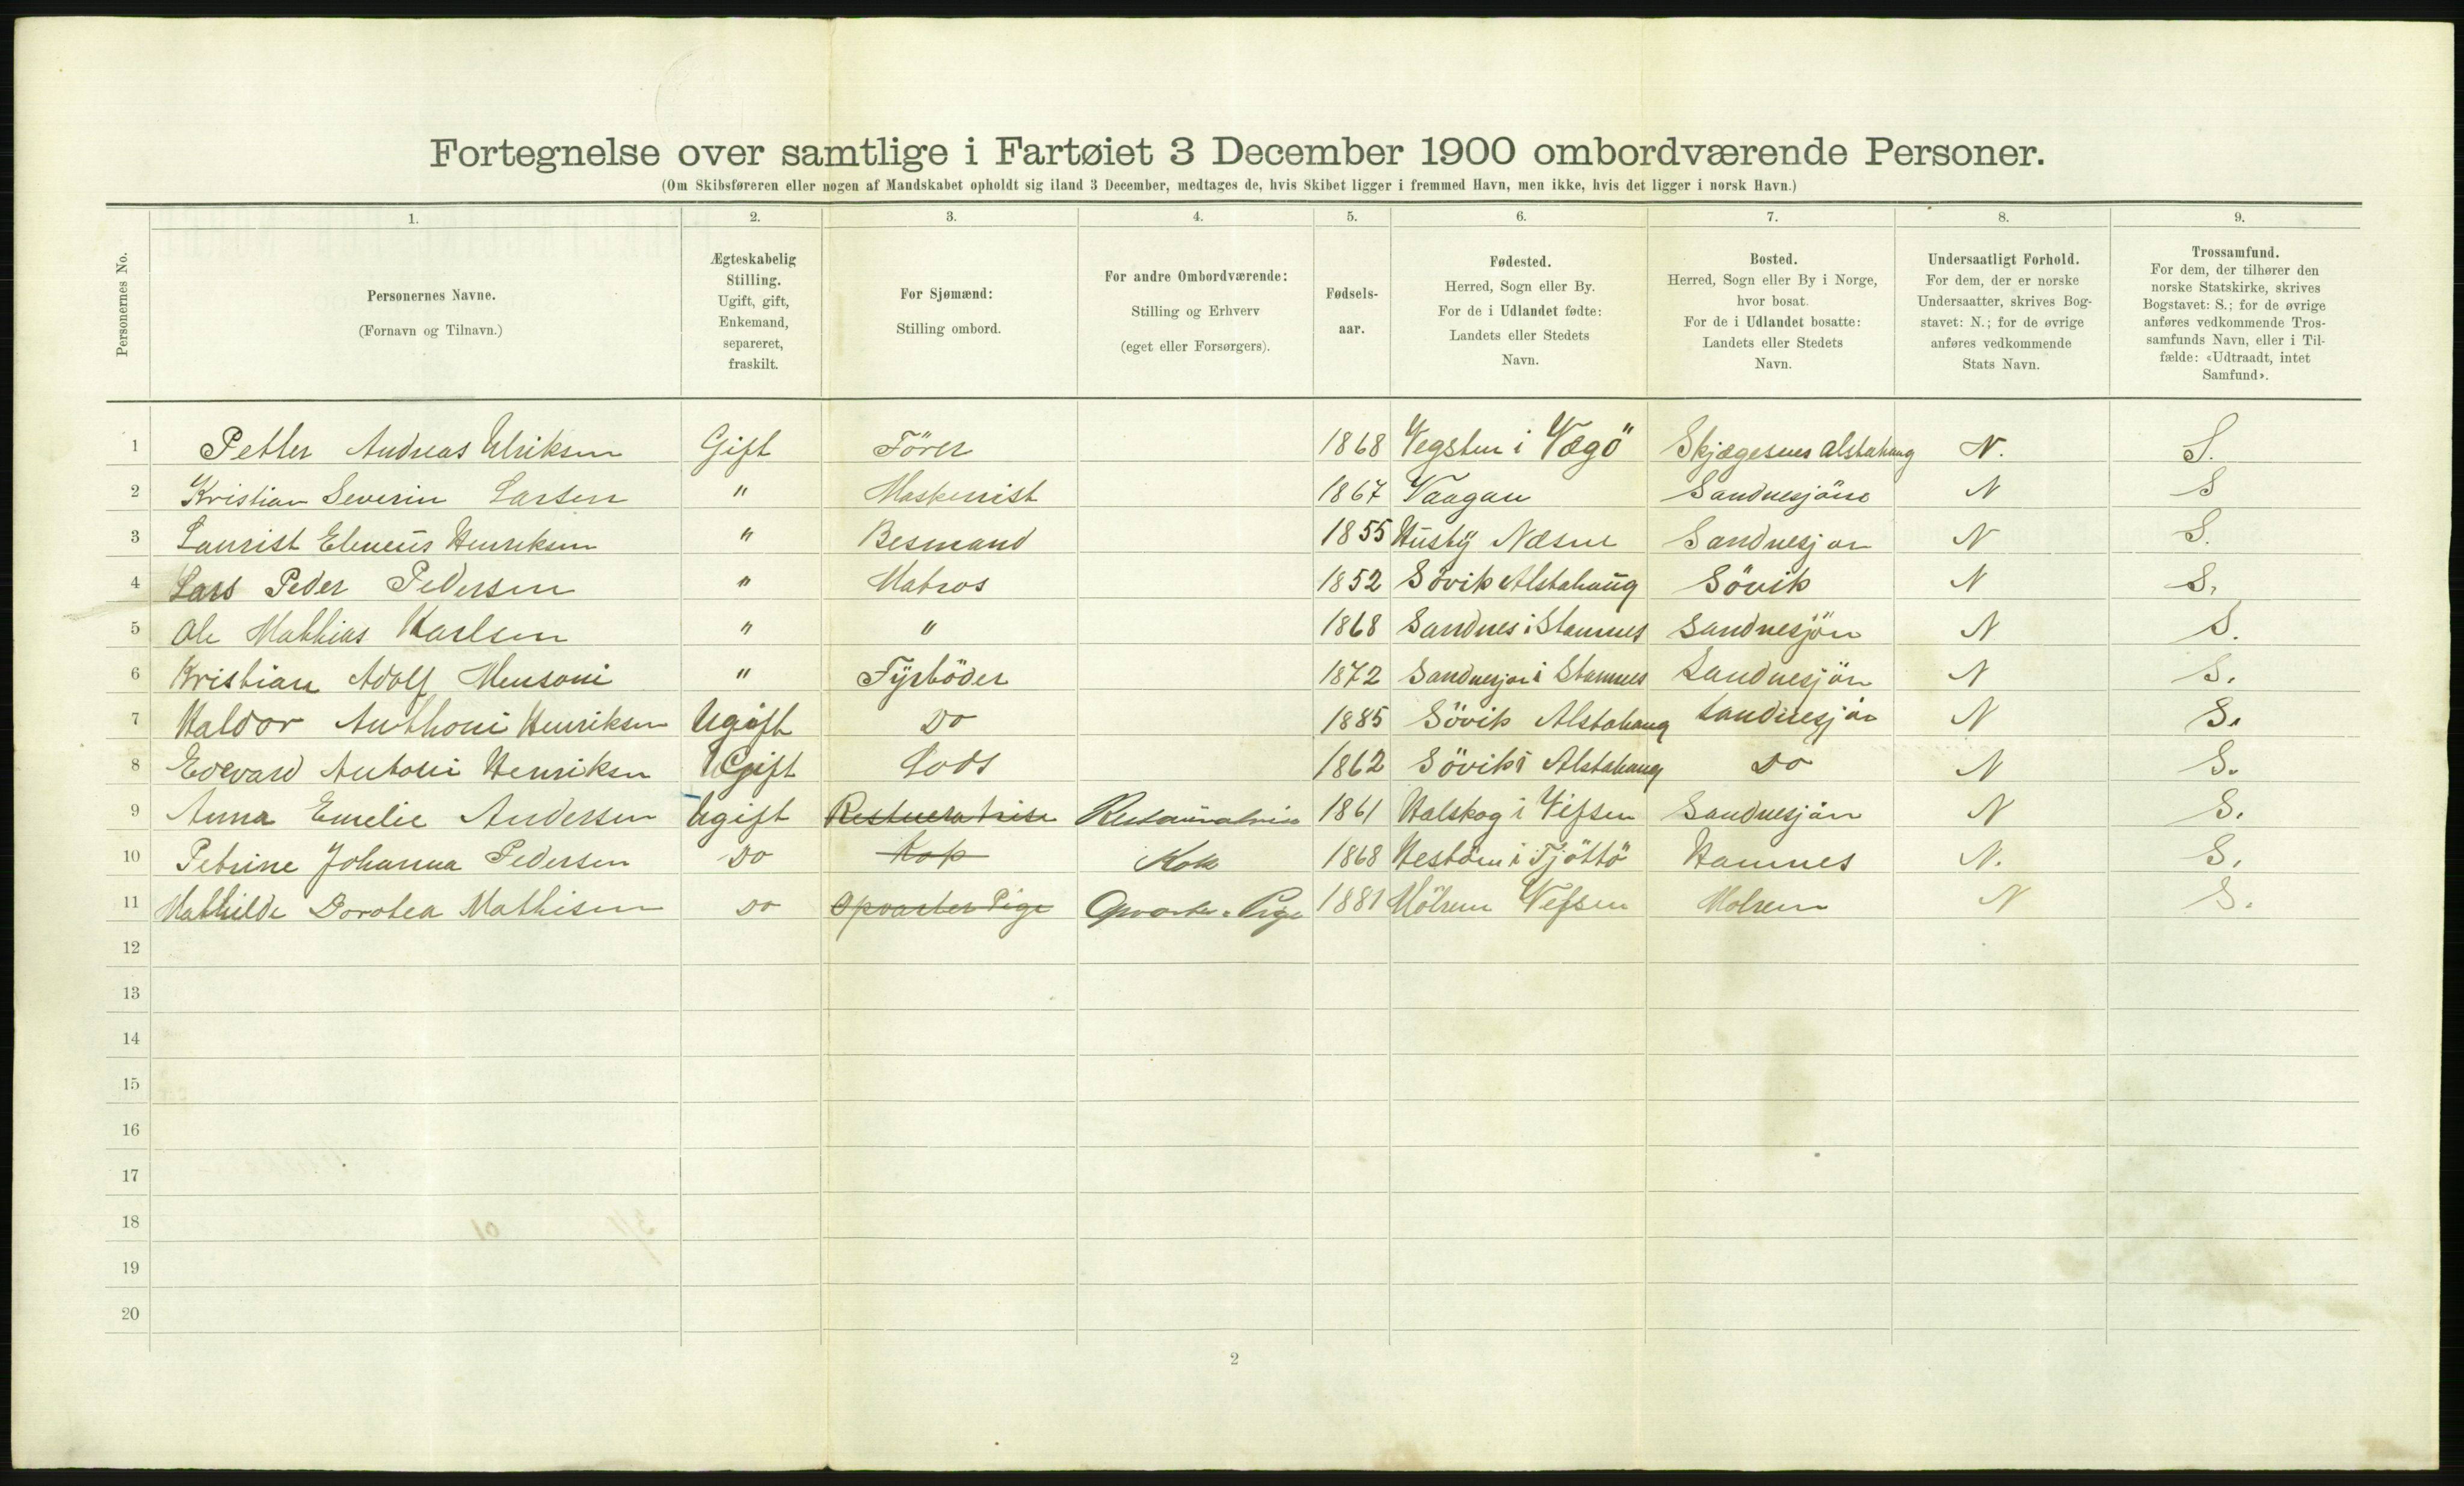 Fortegnelse over samtlige i Fartøiet 3 December 1900 ombordværende Personer.
(Om Skibsføreren eller nogen af Mandskabet opholdt sig iland 3 December, medtages de, hvis Skibet ligger i fremmed Havn, men ikke, hvis det ligger i norsk Havn.)
1. 2. 3. 4. 5. 6. 7. 8. 9.
Personernes No.
Personernes Navne.
(Fornavn og Tilnavn.)
Ægteskabelig
Stilling.
Ugift, gift,
Enkemand,
separeret,
fraskilt.
For Sjømænd:
Stilling ombord.
For andre Ombordværende:
Stilling og Erhverv
(eget eller Forsørgers).
Fødsels-
aar.
Fødested.
Herred, Sogn eller By.
For de i Udlandet fødte:
Landets eller Stedets
Navn.
Bosted.
Herred, Sogn eller By i Norge,
hvor bosat.
For de i Udlandet bosatte:
Landets eller Stedets
Navn.
Undersaatligt Forhold.
For dem, der er norske
Undersaatter, skrives Bog-
stavet: N.; for de øvrige
anføres vedkommende
Stats Navn.
Trossamfund.
For dem, der tilhører den
norske Statskirke, skrives
Bogstavet: S.; for de øvrige
anføres vedkommende Tros-
samfunds Navn, eller i Til-
fælde: «Udtraadt, intet
Samfund».
1 Petter Andreas Ulriksen Gift Förer 1868 Vegsten i Vægö Skjægesnes Alstahaug N. S.
2 Kristian Severin Larsen " Maskenist 1867 Vaagan Sandnesjöen N S
3 Laurist Eleneüs Henriksen " Besmand 1855 Hüsbÿ Næsne Sandnesjøn N S.
4 Lars Peder Pedersen " Matros 1852 Sövik Alstahaüg Sövik N S.
5 Ole Mathias Karlsen " " 1868 Sandnes i Stamnes Sandnesjön N S.
6 Kristian Adolf Mensoni " Fÿrböder 1872 Sandnesjøn i Stamnes Sandnesjön N S.
7 Haldor Anthoni Henriksen Ugift Do 1885 Sövik Alstahaug Sandnesjön N S.
8 Edevard Antoni Henriksen Gift Lods 1862 Sövik i Alstahaug Do N S.
9 Anna Emelie Andersen Ugift Restueratrise Restaüratrise 1861 Halskog i Vefsen Sandnesjön N S.
10 Petrine Johanna Pedersen Do Kok Kok 1868 Hestöen i Tjöttö Hamnes N. S.
11 Mathilde Dorotea Mathisen Do Opvarter Pige Opvarter-Pige 1881 Hölren Vefsen Holren N S.
12
13
14
15
16
17
18
19
20
2